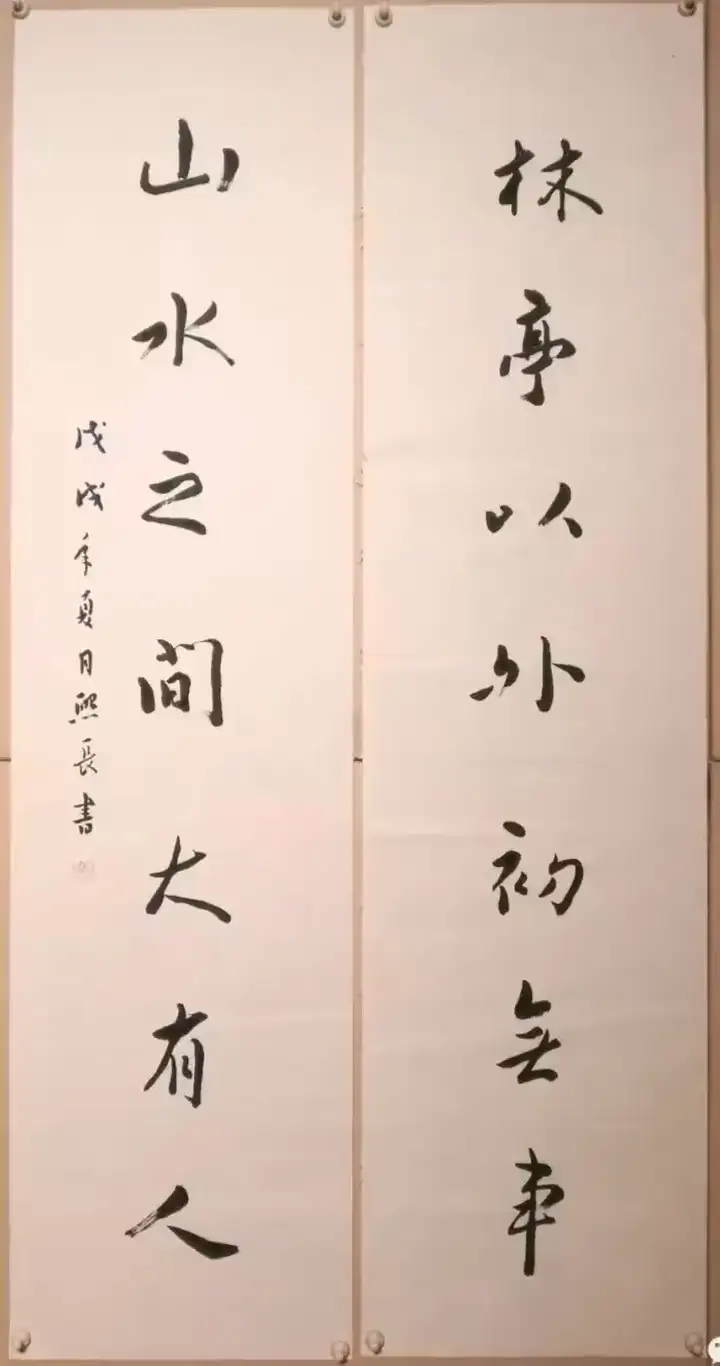 林亭以外初無事
山水之間大有人
戊戌年夏月熙長書